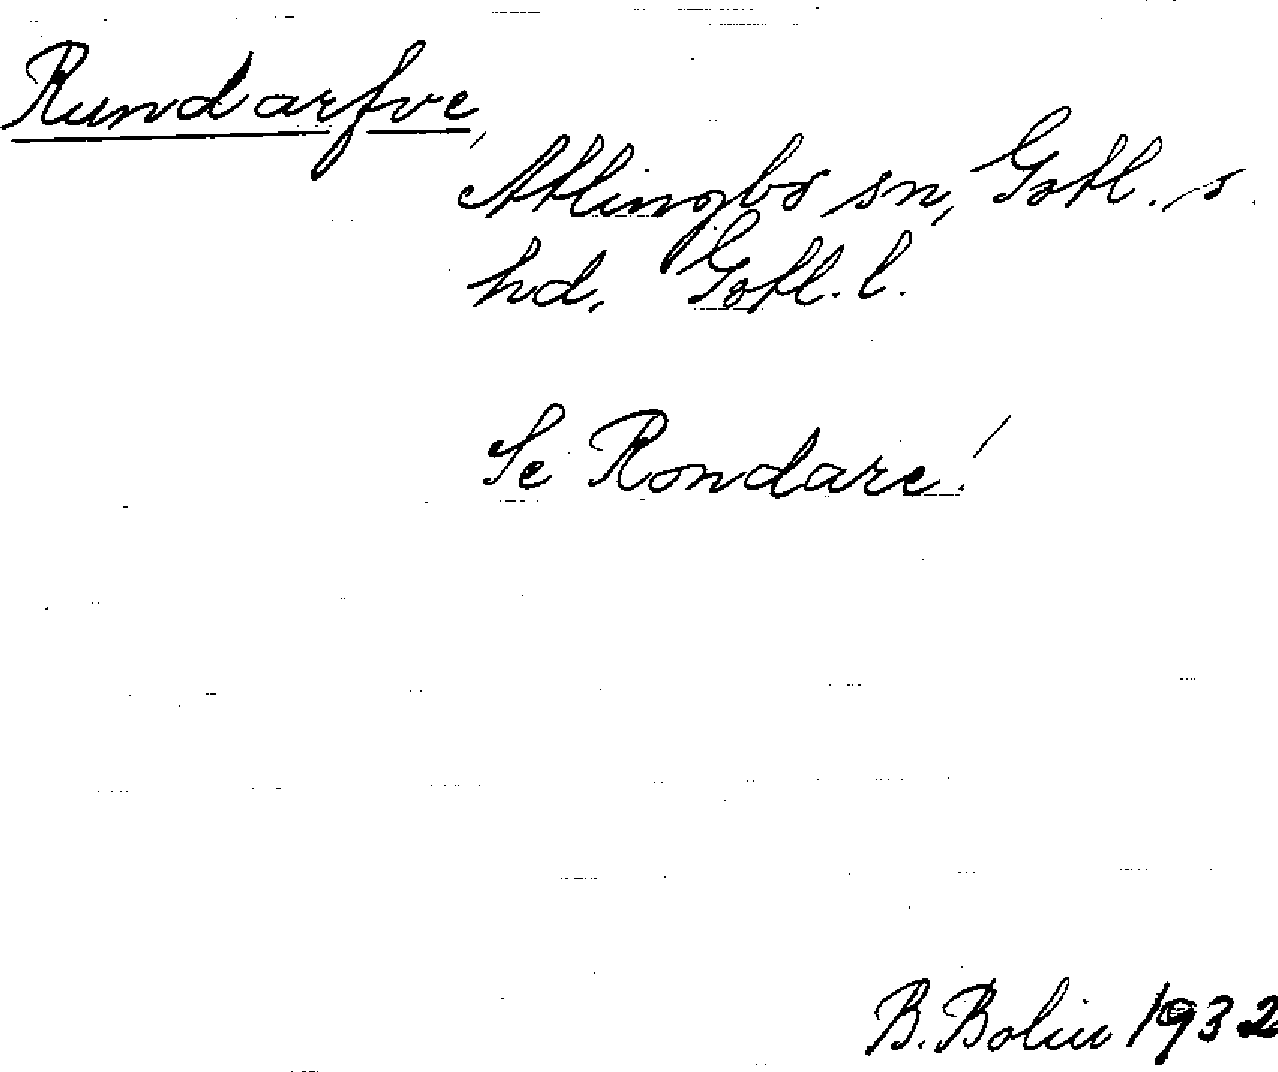 Rundarfve,
Atlingbo sn, Gotl. s.
hd. Gotl. l.
Se Rondare!
B. Bolin 1932